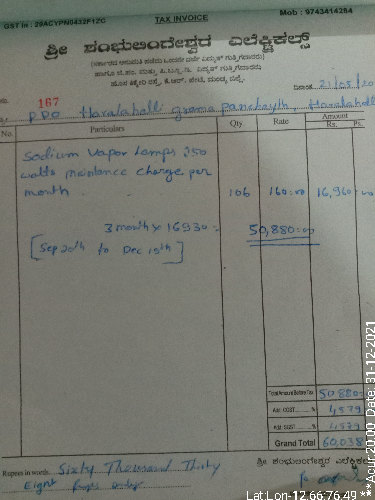 GST In : 29ACYPN0432F1ZC
TAX INVOICE
Mob : 9743414284
ಶ್ರೀ ಶಂಭುಲಿಂಗೇಶ್ವರ ಎಲೆಕ್ಟ್ರಿಕಲ್ಸ್
167
PDO Haralahalli grama panchayth, Haralahalli
No. Particulars Qty. Rate Amount
Rs. Ps.
Sodium Vapor Lamps 250
watts maintance charge per
month 106 160=00 16,960=00
3 month x 16930= 50,880=00
[Sep 20th to Dec 19th]
Total Amount Before Tax 50,880=
Add: CGST % 4579
Add: SGST % 4579
Grand Total 60,038
Rupees in words. Sixty Thousand Thirty
Eight Rupees only
ಶ್ರೀ ಶಂಭುಲಿಂಗೇಶ್ವರ
Lat:Lon-12.66:76.49
***Acu: 20.00 Date: 31-12-2021